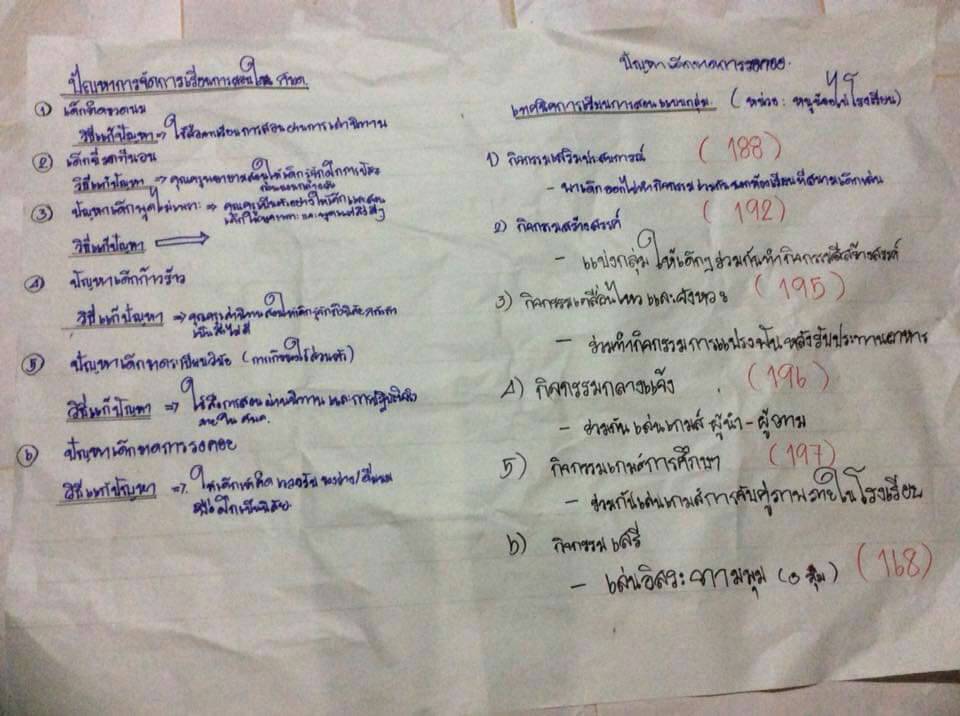 ปัญหาการจัดการเรียนการสอนใน ศพด.
① เด็กติดขวดนม
วิธีแก้ปัญหา => ใช้สื่อการเรียนการสอนผ่านการเล่านิทาน
② เด็กฉี่รดที่นอน
วิธีแก้ปัญหา => คุณครูพยายามสอนให้เด็กรู้จักฝึกการปัสสะ
ก่อนนอนกลางวัน
③ ปัญหาเด็กพูดไม่เพราะ => คุณครูเป็นตัวอย่างให้เด็กและสอน
วิธีแก้ปัญหา
④ ปัญหาเด็กก้าวร้าว
วิธีแก้ปัญหา => คุณครูเล่านิทานสอนให้เด็กรู้จัก
เป็นสิ่งไม่ดี
⑤ ปัญหาเด็กขาดระเบียบวินัย (การเก็บของใช้ส่วนตัว)
วิธีแก้ปัญหา => ใช้สื่อการสอนผ่านนิทานและการปฏิบัติจริง
ภายใน ศพด.
⑥ ปัญหาเด็กขาดการรอคอย
วิธีแก้ปัญหา => ให้เด็กเข้าคิวรอรับของว่าง/ดื่มนม
ปัญหาเด็กขาดการรอคอย
เทคนิคการเรียนการสอนแบบกลุ่ม. (หน่วย : หนูน้อยไปโรงเรียน)
1) กิจกรรมเสริมประสบการณ์ (188)
- พาเด็กออกไปทำกิจกรรมร่วมกันนอกห้องเรียนที่สนามเด็กเล่น
2) กิจกรรมสร้างสรรค์ (192)
- แบ่งกลุ่มให้เด็กๆร่วมกันทำกิจกรรมศิลปสร้างสรรค์
3) กิจกรรมเคลื่อนไหวและจังหวะ (195)
- ร่วมทำกิจกรรมการแปรงฟันหลังรับประทานอาหาร
4) กิจกรรมกลางแจ้ง (196)
- ร่วมกันเล่นเกมส์ ผู้นำ - ผู้ตาม
5) กิจกรรมเกมส์การศึกษา (197)
- ร่วมกันเล่นเกมส์การจับคู่ภาพภายในโรงเรียน
6) กิจกรรมเสรี
- เล่นอิสระตามมุม (168)